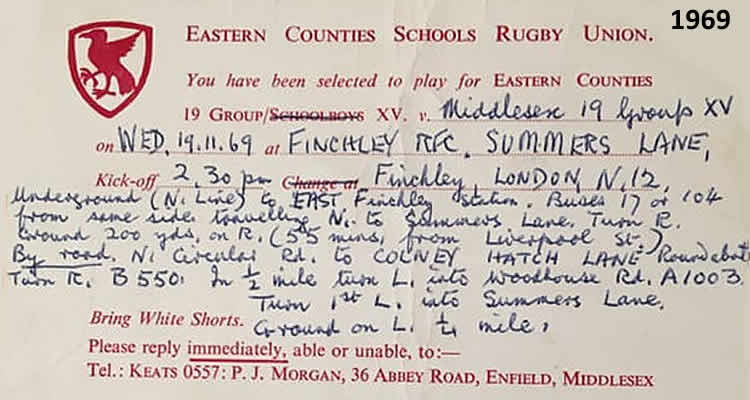 1969
EASTERN COUNTIES SCHOOLS RUGBY UNION.
You have been selected to play for EASTERN COUNTIES
19 GROUP/SCHOOLBOYS XV. v. Middlesex 19 Group XV
on WED. 19.11.69 at FINCHLEY RFC. SUMMERS LANE,
Kick-off 2.30 pm Change at Finchley, LONDON, N.12,
Underground (N. Line) to EAST Finchley station. Buses 17 or 104
from same side travelling N. to Summers Lane. Turn R.
Ground 200 yds. on R. (55 mins, from Liverpool St.)
By road. N. Circular Rd. to COLNEY HATCH LANE Roundabout
Turn R. B550. In ½ mile turn L. into Woodhouse Rd. A1003.
Turn 1st L. into Summers Lane.
Bring White Shorts. Ground on L. ¼ mile.
Please reply immediately, able or unable, to:—
Tel.: KEATS 0557: P. J. MORGAN, 36 ABBEY ROAD, ENFIELD, MIDDLESEX